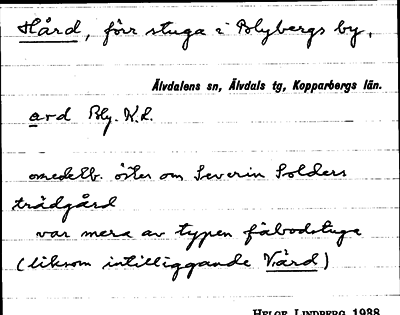 Hård, förr stuga i Blybergs by,
Älvdalens sn, Älvdals tg, Kopparbergs län.
ard Bly. K.L.
omedelb. öster om Severin Solders
trädgård
var mera av typen fäbodstuga
(liksom intilliggande Vård)
HELGE LINDBERG 1988